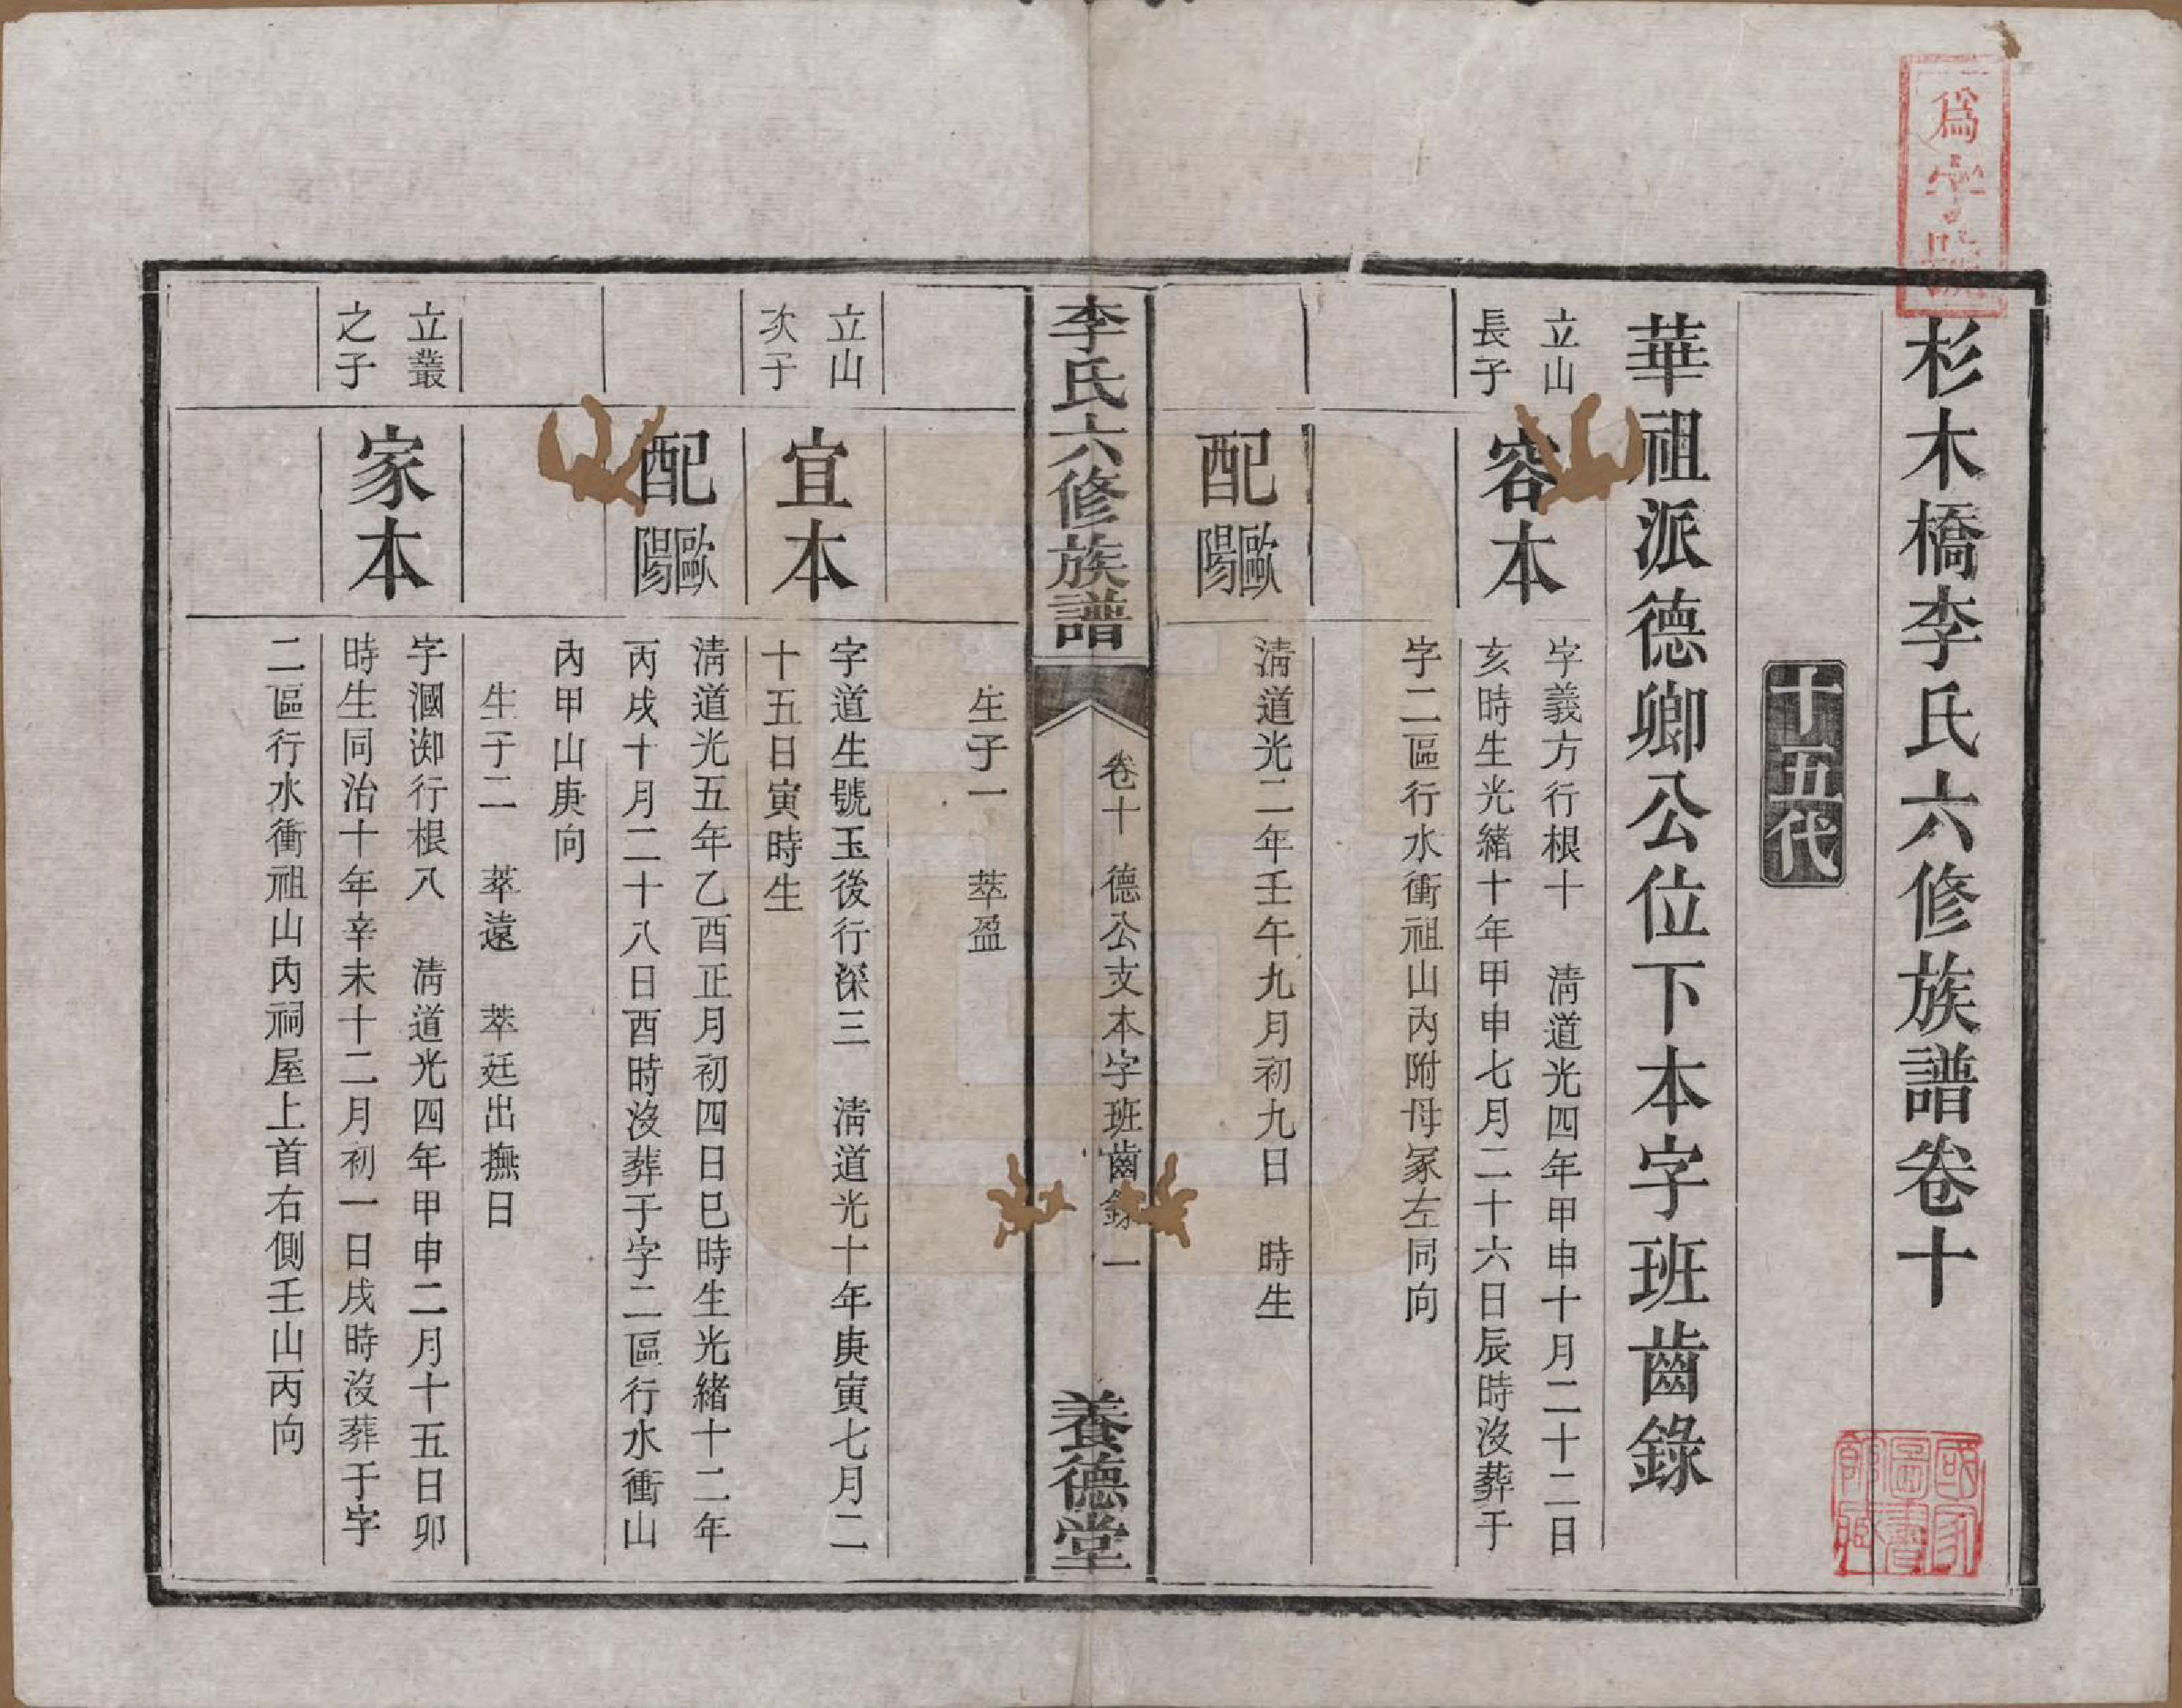 爲字號
杉木橋李氏六修族譜卷十
十五代
華祖派德卿公位下本字班齒錄
立山
長子
容本
字義方行根十 淸道光四年甲申十月二十二日
亥時生光緒十年甲申七月二十六日辰時沒葬于
字二區行水衝祖山內附母冢左同向
配歐陽
淸道光二年壬午九月初九日 時生
李氏六修族譜
卷十 德公支本字班齒錄一
養德堂
生子一 萃盈
立山
次子
宜本
字道生號玉後行深三 淸道光十年庚寅七月二
十五日寅時生
配歐陽
淸道光五年乙酉正月初四日巳時生光緒十二年
丙戌十月二十八日酉時沒葬于字二區行水衝山
內甲山庚向
生子二 萃遠 萃廷出撫日
立叢
之子
家本
字溷泖行根八 淸道光四年甲申二月十五日卯
時生同治十年辛未十二月初一日戌時沒葬于字
二區行水衝祖山內祠屋上首右側壬山丙向
國家
圖書
館藏